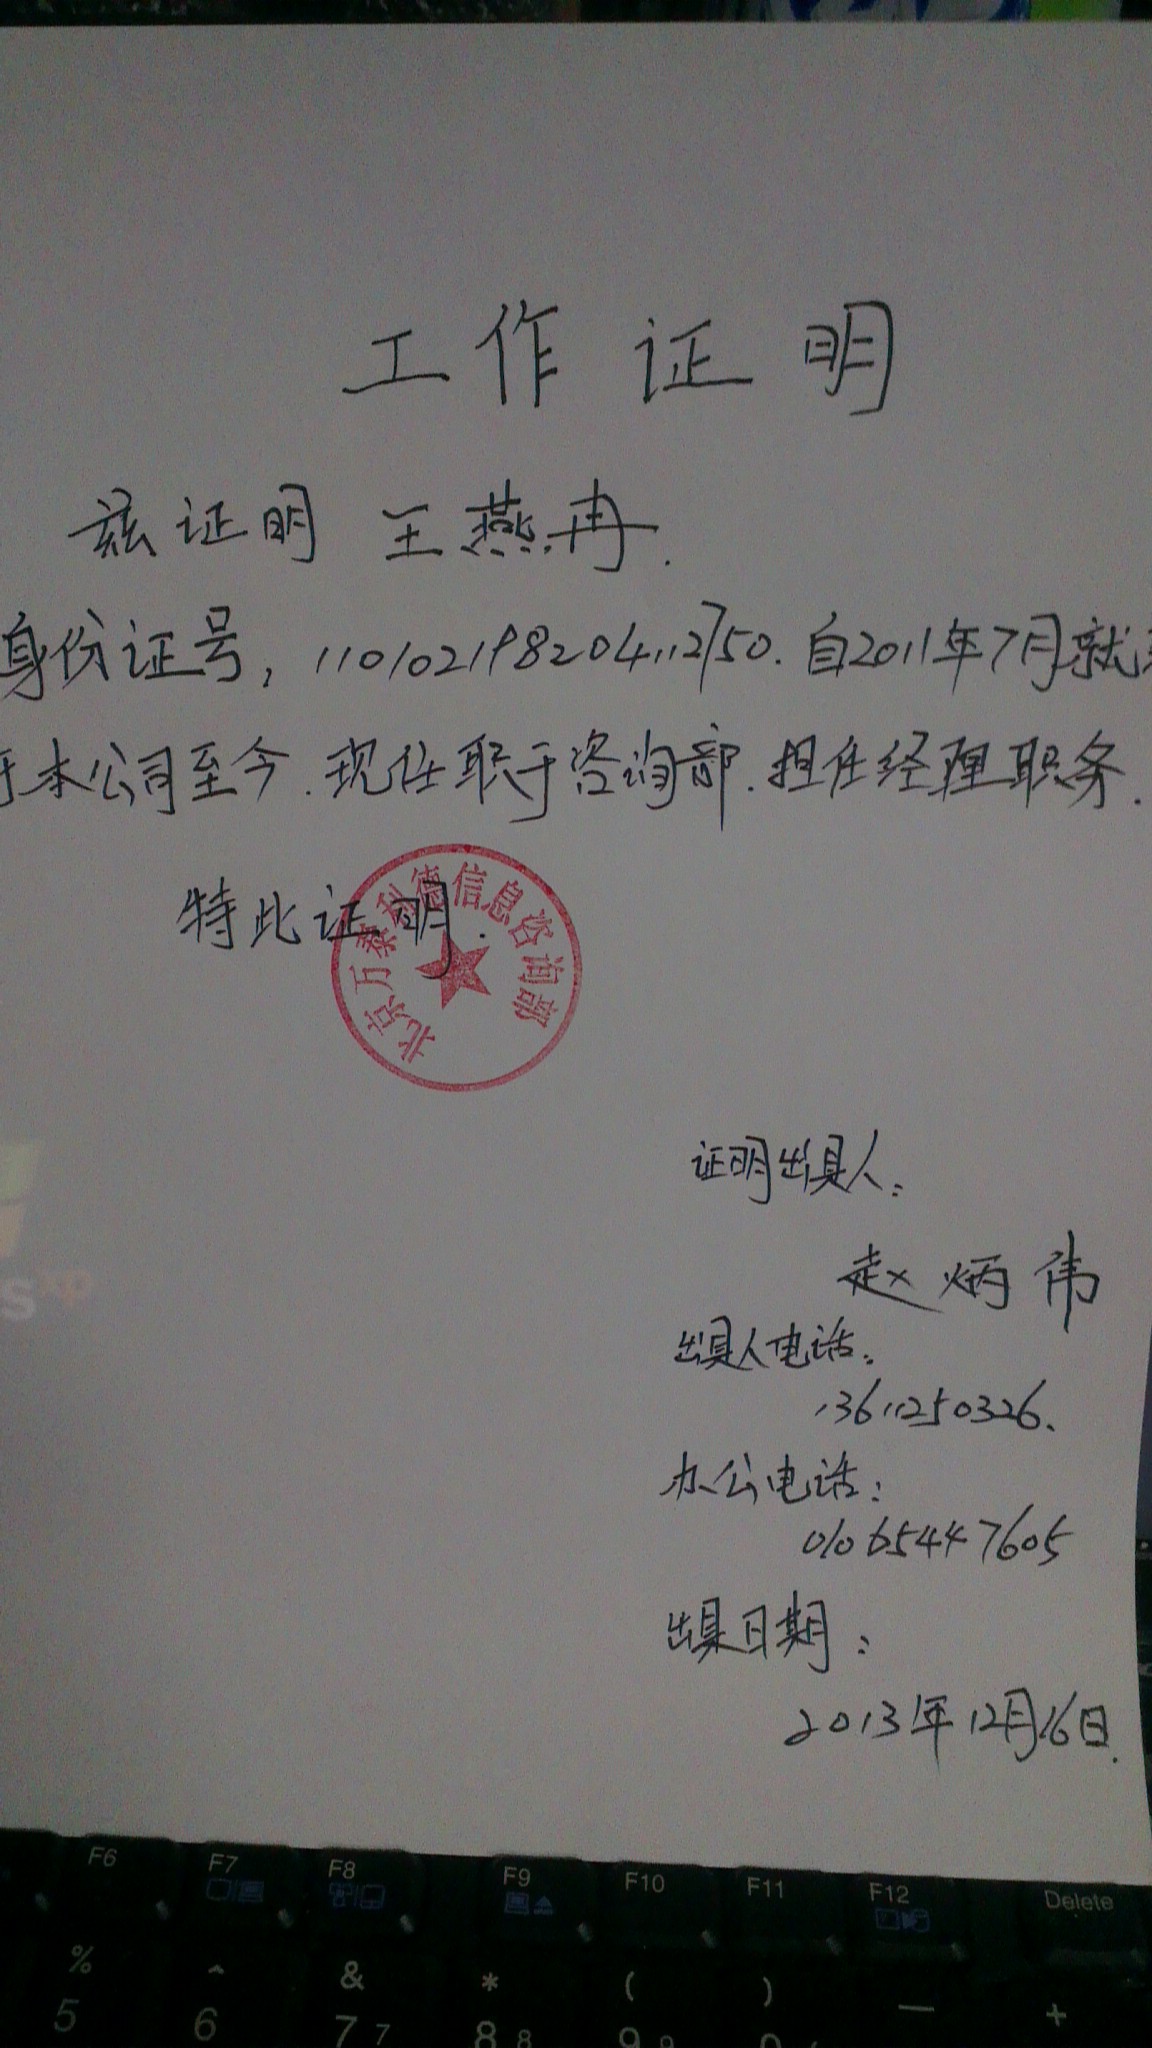 工作证明
兹证明 王燕冉.
身份证号, 110102198204112750. 自2011年7月就
本公司至今.现任职于咨询部.担任经理职务.
特此证明.
北京万泰利德信息咨询部
证明出具人:
赵炳伟
出具人电话:
13611250326.
办公电话:
01065447605
出具日期:
2013年12月16日.
s xp
F6 F7 F8 F9 F10 F11 F12 Delete
% ^ & * ( ) — +
5 6 7 7 8 8 9 9